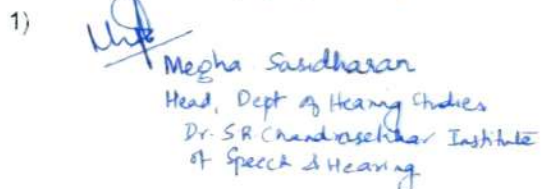 1)
Megha Sasidharan
Head, Dept of Hearing Studies
Dr. S R Chandrasekhar Institute
of Speech & Hearing